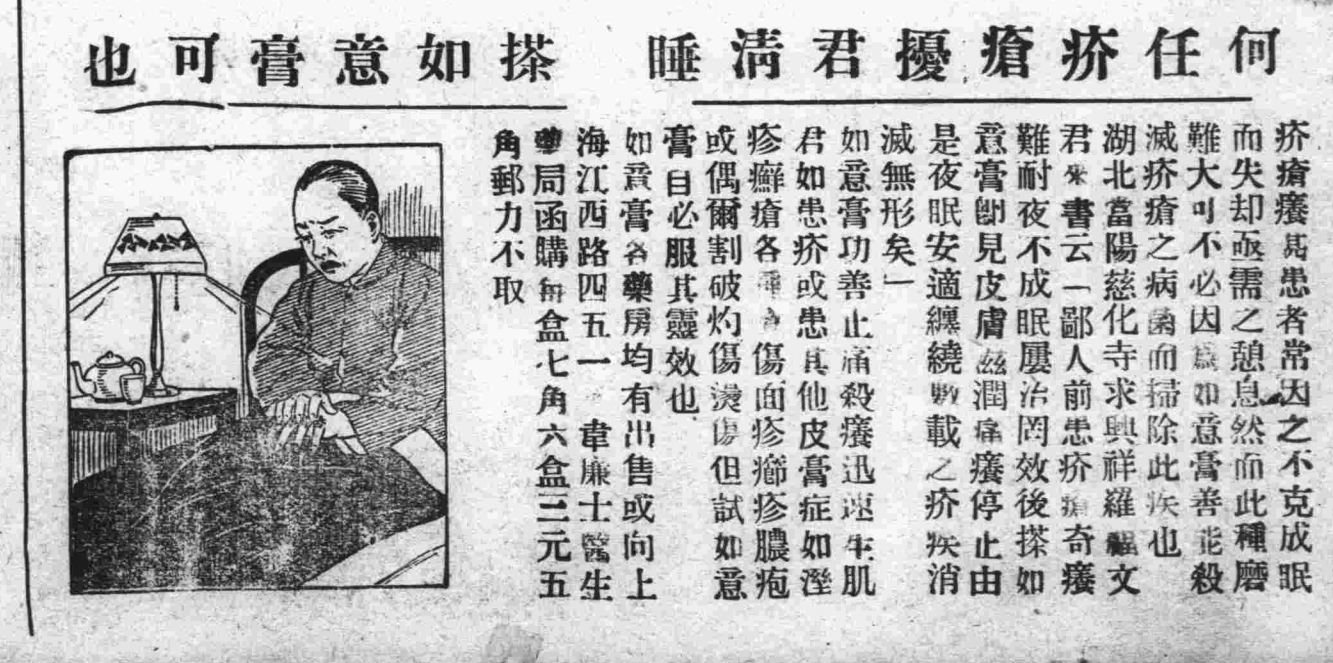 何任疥瘡擾君清睡
搽如意膏可也
疥瘡癢甚患者常因之不克成眠
而失却亟需之憩息然而此種磨
難大可不必因爲如意膏善能殺
滅疥瘡之病菌而掃除此疾也
湖北當陽慈化寺求興祥羅福文
君來書云「鄙人前患疥瘡奇癢
難耐夜不成眠屢治罔效後搽如
意膏卽見皮膚滋潤痛癢停止由
是夜眠安適纏繞數載之疥疾消
滅無形矣」
如意膏功善止痛殺癢迅速生肌
君如患疥或患其他皮膏症如溼
疹癬瘡各種傷面疹癤疹膿疱
或偶爾割破灼傷燙傷但試如意
膏自必服其靈效也
如意膏各藥房均有出售或向上
海江西路四五一韋廉士醫生
藥局函購每盒七角六盒三元五
角郵力不取